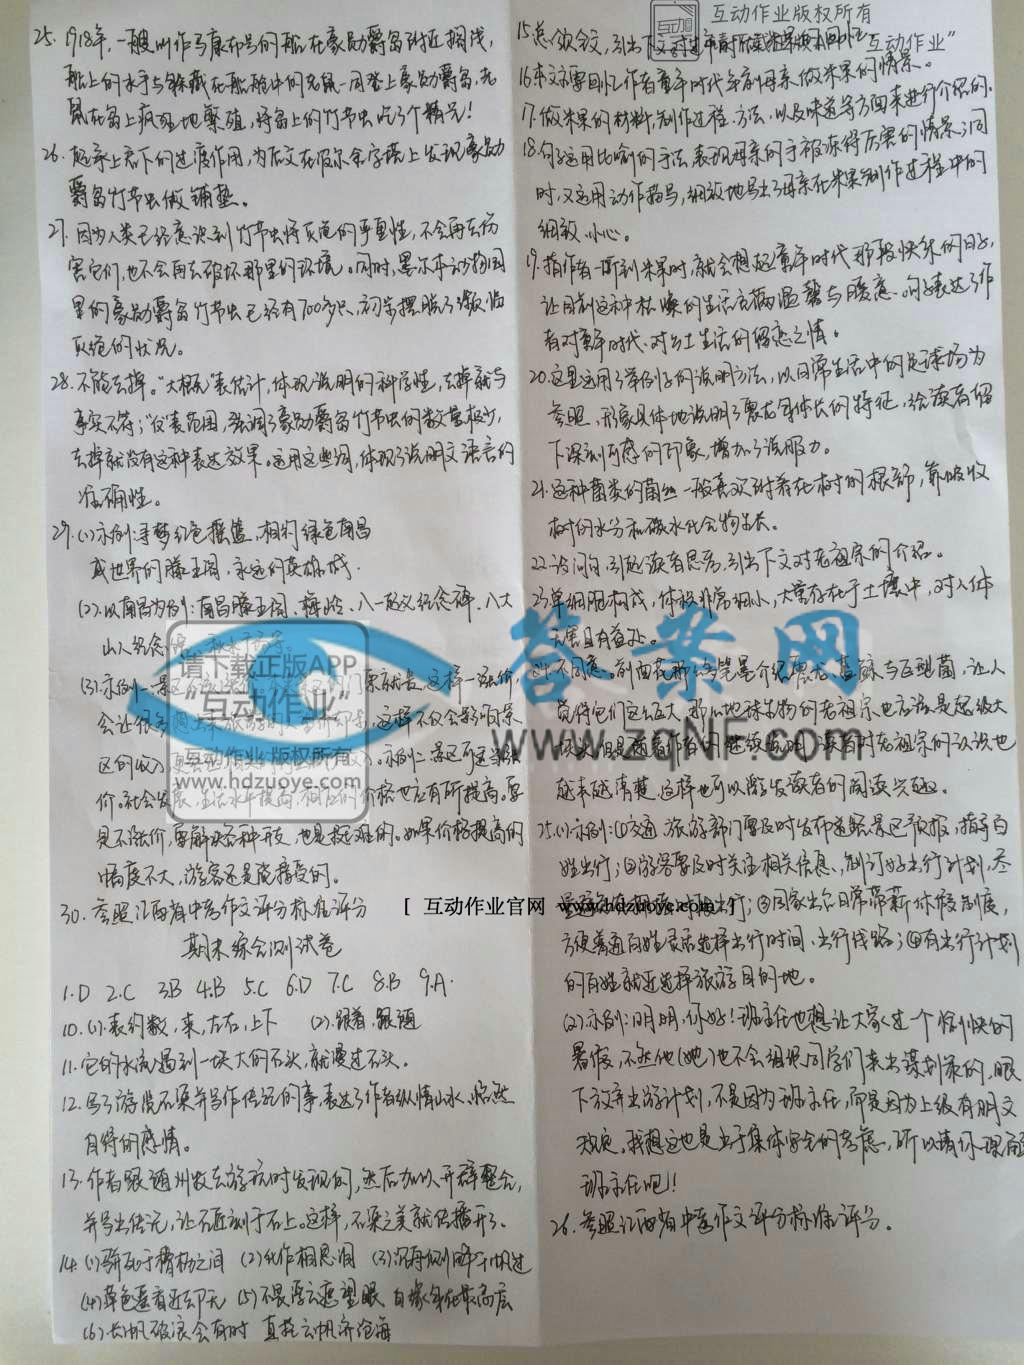 25. 1918年,一艘叫作马康布号的船在豪勋爵岛附近搁浅,
船上的水手与躲藏在船舱中的老鼠一同登上豪勋爵岛,老
鼠在岛上疯狂地繁殖,将岛上的竹节虫吃了个精光!
26. 起承上启下的过渡作用,为后文在伯尔金字塔上发现豪勋
爵岛竹节虫做铺垫。
27. 因为人类已经意识到竹节虫将灭绝的严重性,不会再去伤
害它们,也不会再去破坏那里的环境。同时,墨尔本动物园
里的豪勋爵岛竹节虫已经有700多只,初步摆脱了濒临
灭绝的状况。
28. 不能去掉。“大概”表估计,体现说明的科学性,去掉就与
事实不符;“仅”表范围,强调了豪勋爵岛竹节虫的数量极少,
去掉就没有这种表达效果。运用这些词,体现了说明文语言的
准确性。
29. (1)示例:寻梦红色摇篮,相约绿色南昌
或世界的滕王阁,永远的英雄城.
(2).以南昌为例:南昌滕王阁、梅岭、八一起义纪念碑、八大
山人纪念馆、秋水广场等。
(3).示例一:景区
会让很多 这样不仅会影响景
区的收入 示例二:景区可适当涨
价。社会发展,生活水平提高,相应的价格也应有所提高。要
是不涨价,要解决各种开支,也是挺难的。如果价格提高的
幅度不大,游客还是能接受的。
30. 参照江西省中考作文评分标准评分
期末综合测试卷
1.D 2.C 3.B 4.B 5.C 6.D 7.C 8.B 9.A.
10. (1).表约数,来,左右,上下 (2).跟着,跟随
11. 它的水流遇到一块大的石头,就漫过石头。
12. 写了游览石梁并写作传记的事,表达了作者纵情山水、悠然
自得的感情。
13. 作者跟随州牧去游玩时发现的,然后加以开辟整合,
并写出传记,让石匠刻于石上。这样,石梁之美就传播开了。
14. (1)骈死于槽枥之间 (2)化作相思泪 (3)沉舟侧畔千帆过
(4)草色遥看近却无 (5)不畏浮云遮望眼 自缘身在最高层
(6)长风破浪会有时 直挂云帆济沧海
互动作业版权所有
“互动作业”
15.总领全文,引出下文
16.本文主要回忆作者童年时代年前母亲做米果的情景。
17.做米果的材料,制作过程、方法,以及味道等方面来进行介绍的.
18.句子运用比喻的手法表现母亲的手被冻得厉害的情景;同
时,又运用动作描写,细致地写出了母亲在米果制作过程中的
细致、小心。
19.指作者一听到米果时,就会想起童年时代那段快乐的日子,
让目前这种枯燥的生活充满温馨与暖意。句子表达了作
者对童年时代、对乡土生活的留恋之情。
20.这里运用了举例子的说明方法,以日常生活中的足球场为
参照,形象具体地说明了震龙身体长的特征,给读者留
下深刻可感的印象,增加了说服力。
21.这种菌类的菌丝一般喜欢附着在树的根部,靠吸收
树的水分和碳水化合物生长。
22.设问句,引起读者思考,引出下文对老祖宗的介绍。
23.单细胞构成,体积非常细小,大量存在于土壤中,对人体
无害且有益处。
24.不同意。前面花那么多笔墨介绍震龙、蓝鲸与巨型菌,让人
觉得它们这么大,那么地球生物的老祖宗也应该是超级大
读者对老祖宗的认识也
越来越清楚,这样也可以激发读者的阅读兴趣。
25.(1)示例:①交通、旅游部门要及时发布道路、景区预报,指导百
姓出行;②游客要及时关注相关信息,制订好出行计划,尽
出行;③国家出台日常带薪休假制度,
方便普通百姓灵活选择出行时间、出行线路;④有出行计划
的百姓就近选择旅游目的地。
(2)示例:明明,你好!班主任也想让大家过一个愉快的
暑假,不然他(她)也不会组织同学们来出谋划策的,眼
下放弃出游计划,不是因为班主任,而是因为上级有明文
规定。我想这也是出于集体安全的考虑,所以请你理解
班主任吧!
26.参照江西省中考作文评分标准评分。
请下载正版APP
“互动作业”
互动作业 版权所有
www.hdzuoye.com
答案网
www.zqNF.com
[ 互动作业官网 www.hdzuoye.com ]